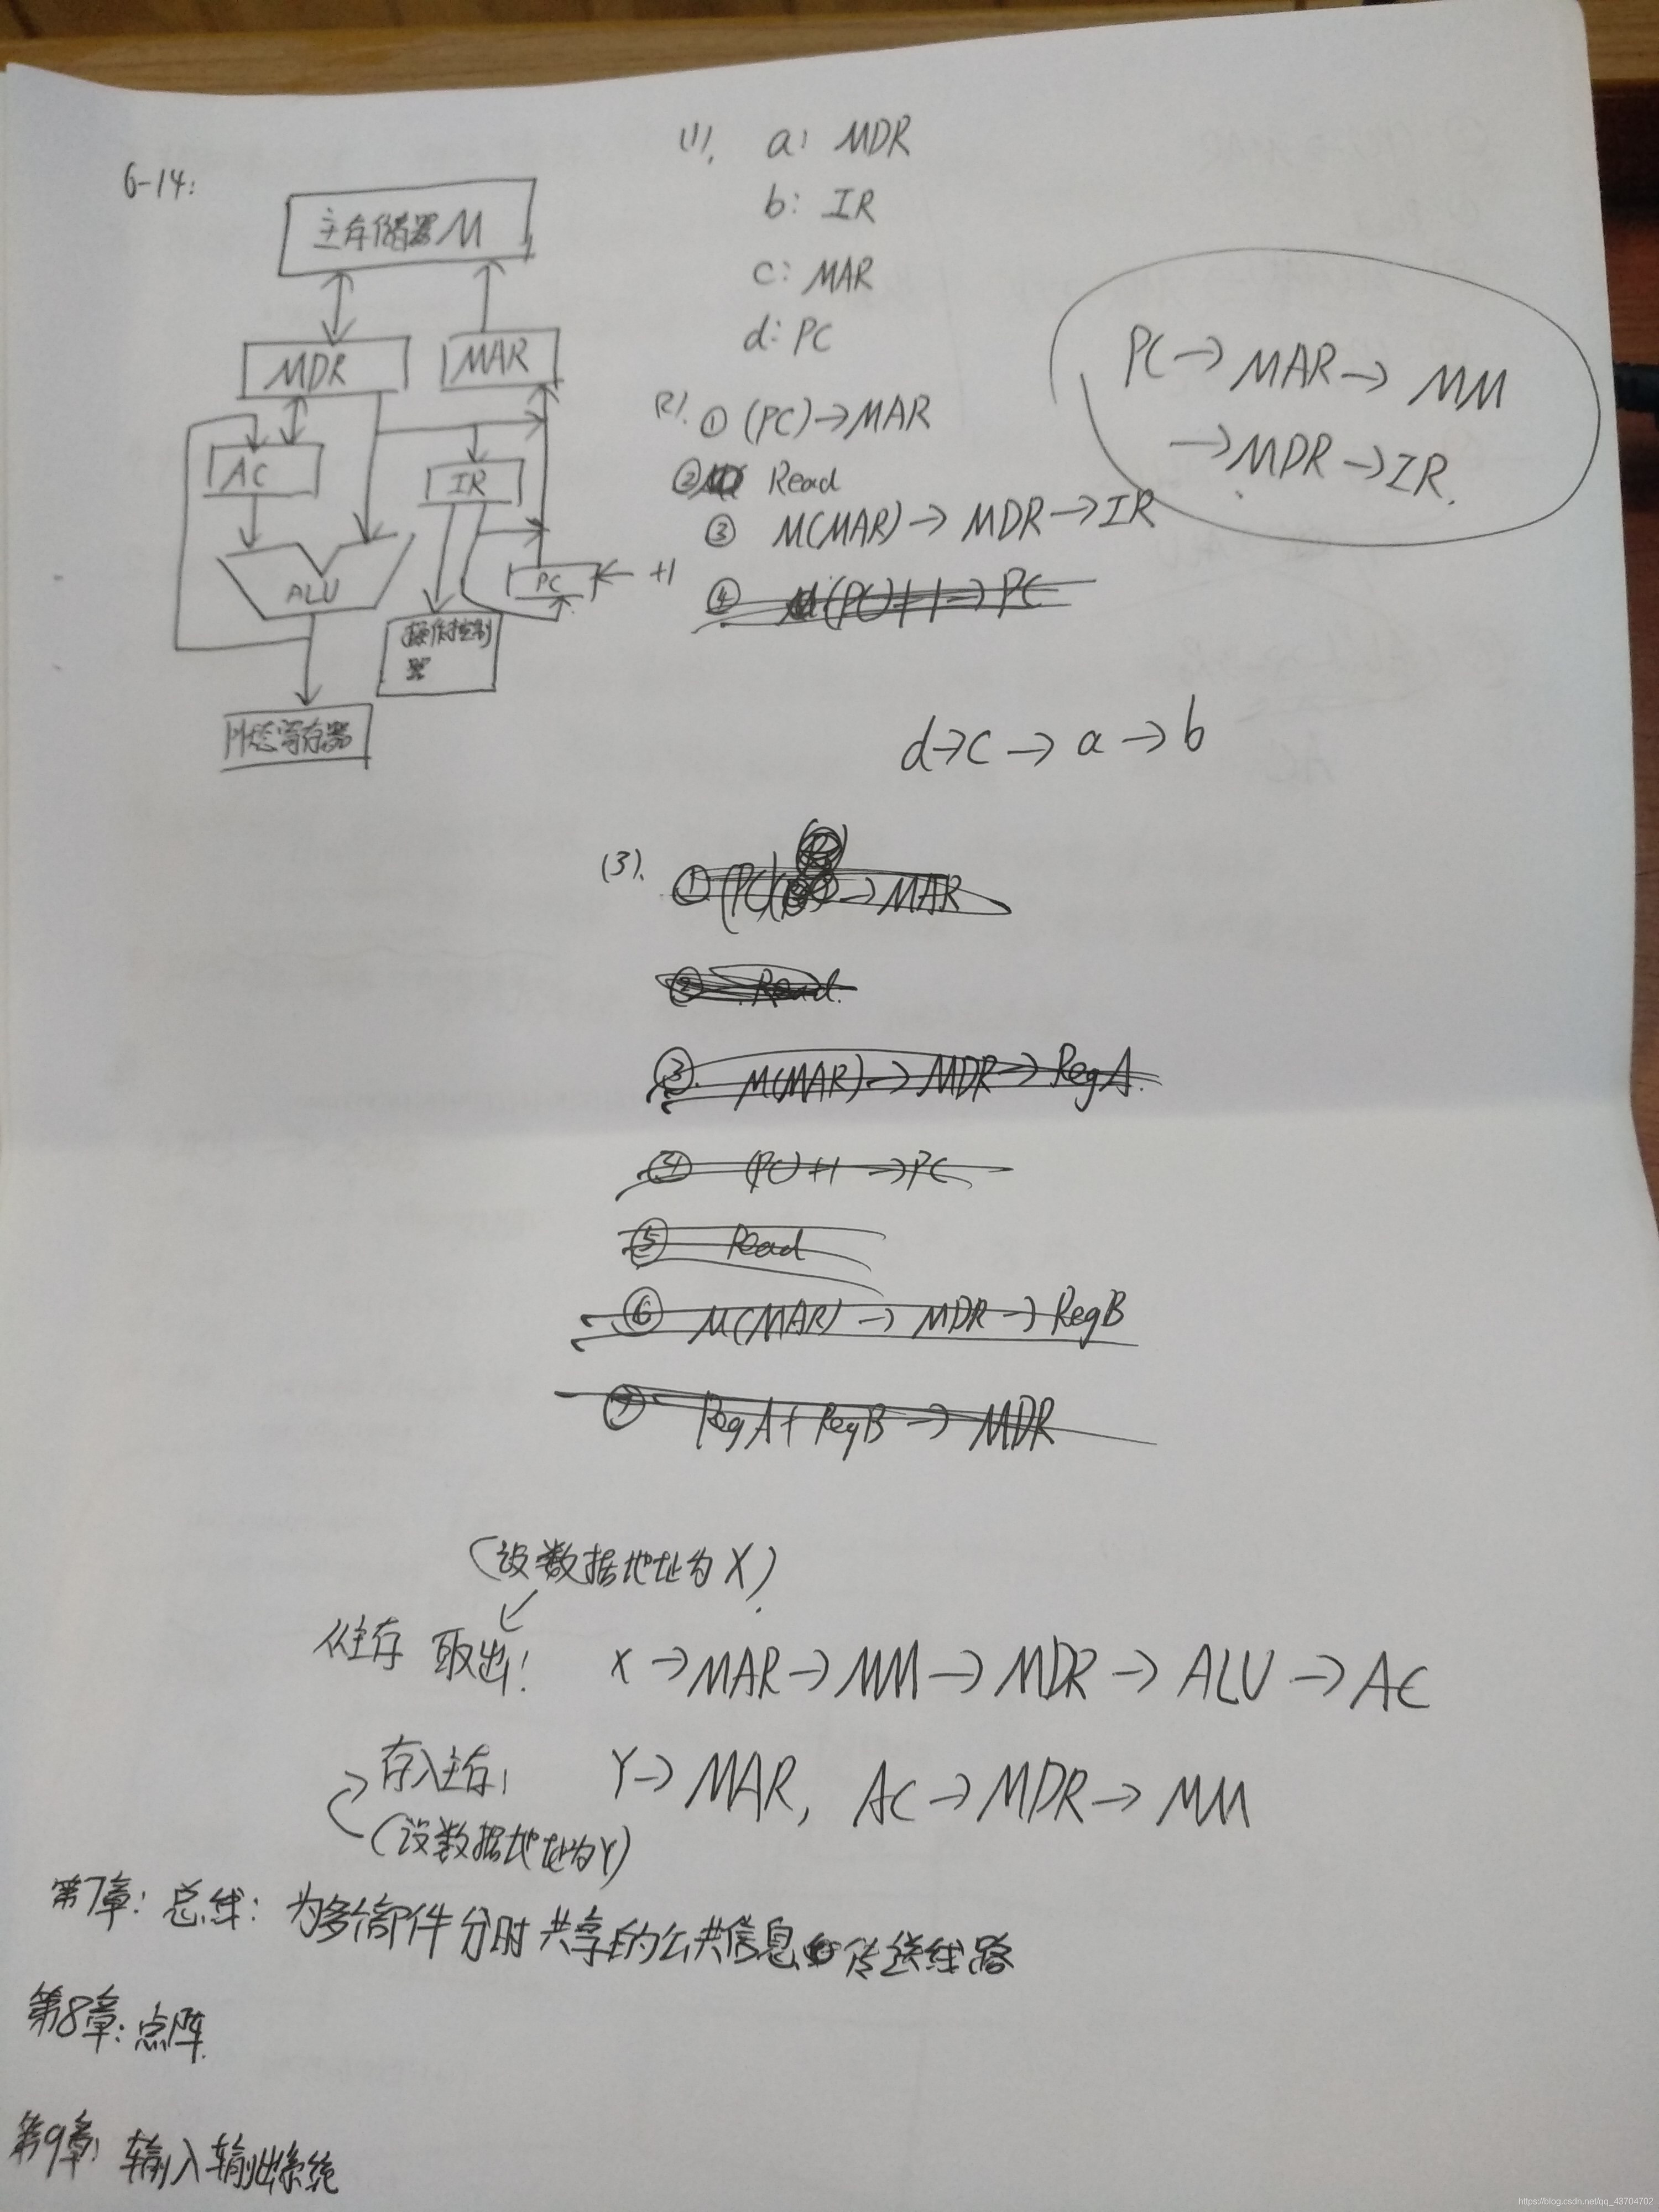 6-14:
主存储器M
MDR
MAR
AC
IR
ALU
PC
+1
操作控制
器
状态寄存器
(1). a: MDR
b: IR
c: MAR
d: PC
① (PC)→MAR
② Read
③ M(MAR)→MDR→IR
④ (PC)+1→PC
PC→MAR→MM
→MDR→IR.
d→c→a→b
(3).
① (PC) →MAR
② Read.
③. M(MAR)→MDR→RegA.
④ (PC)+1→PC
⑤ Read
⑥ M(MAR)→MDR→RegB
⑦ RegA+RegB→MDR
(设数据地址为X).
从主存取出: X→MAR→MM→MDR→ALU→AC
存入主存: Y→MAR, AC→MDR→MM
(设数据地址为Y)
第7章: 总线: 为多个部件分时共享的公共信息传送线路
第8章: 点阵.
第9章: 输入输出系统
https://blog.csdn.net/qq_43704702